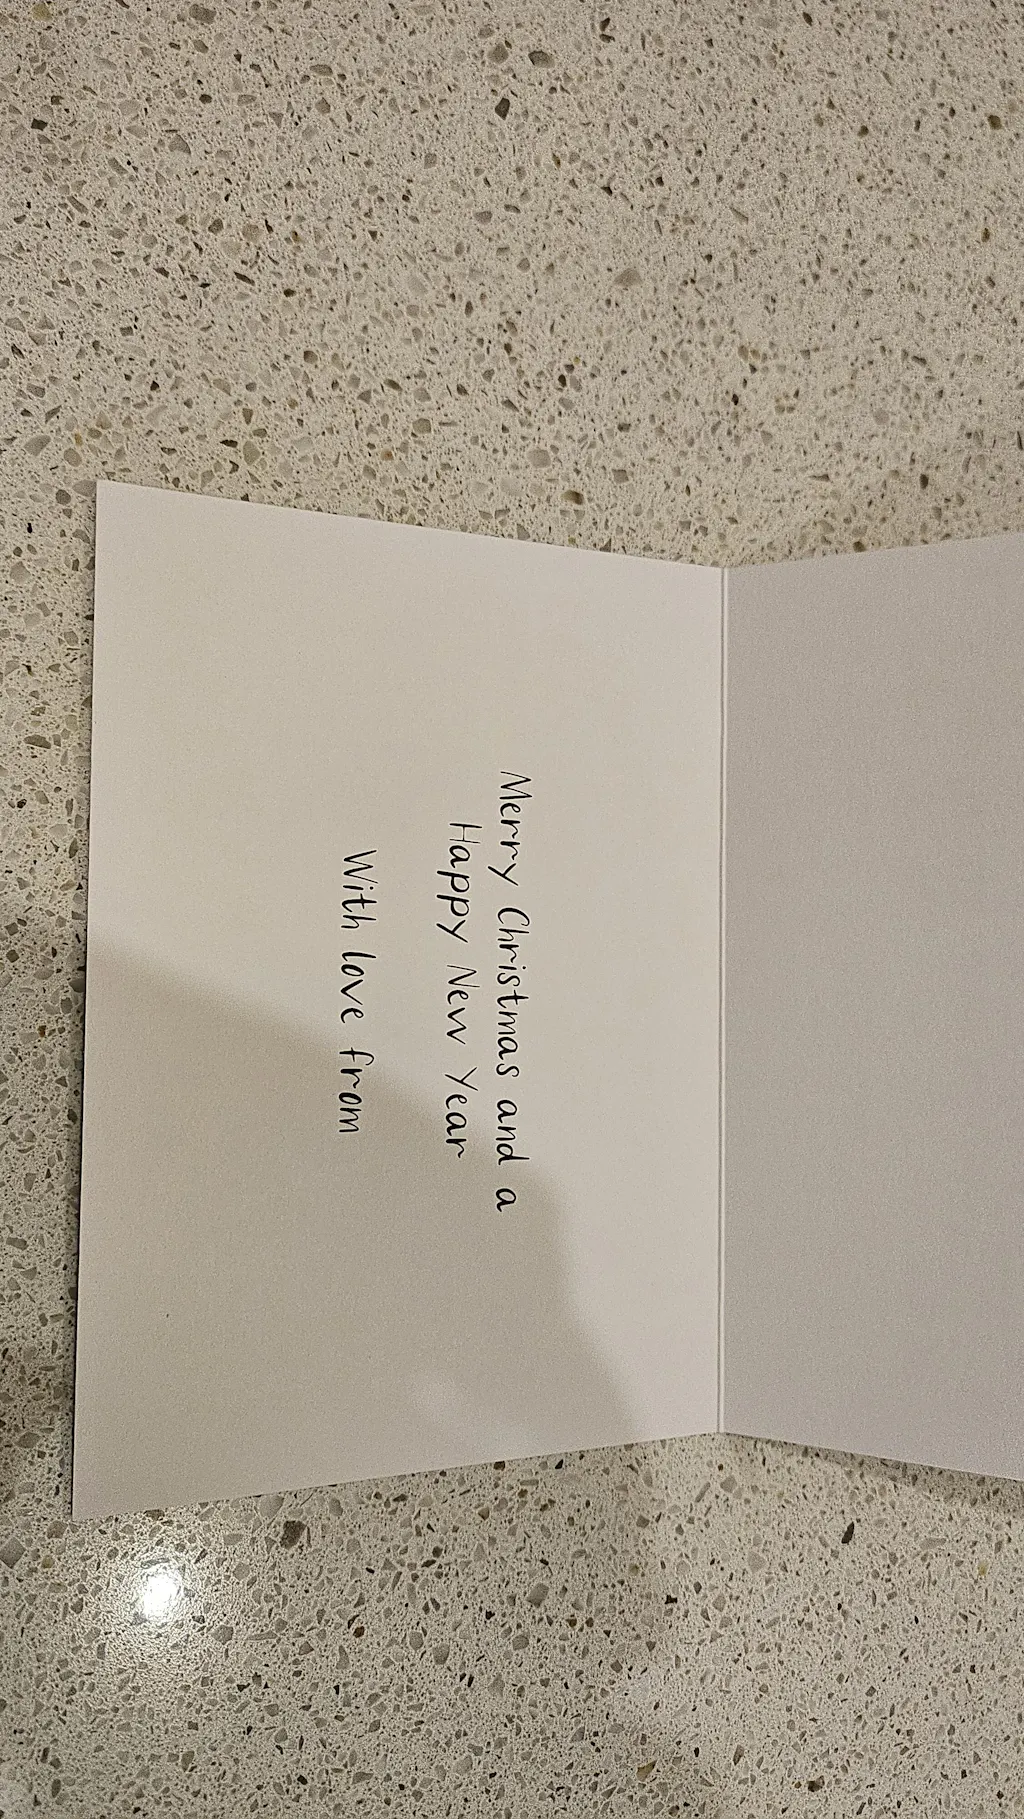 Merry Christmas and a
Happy New Year
With love from